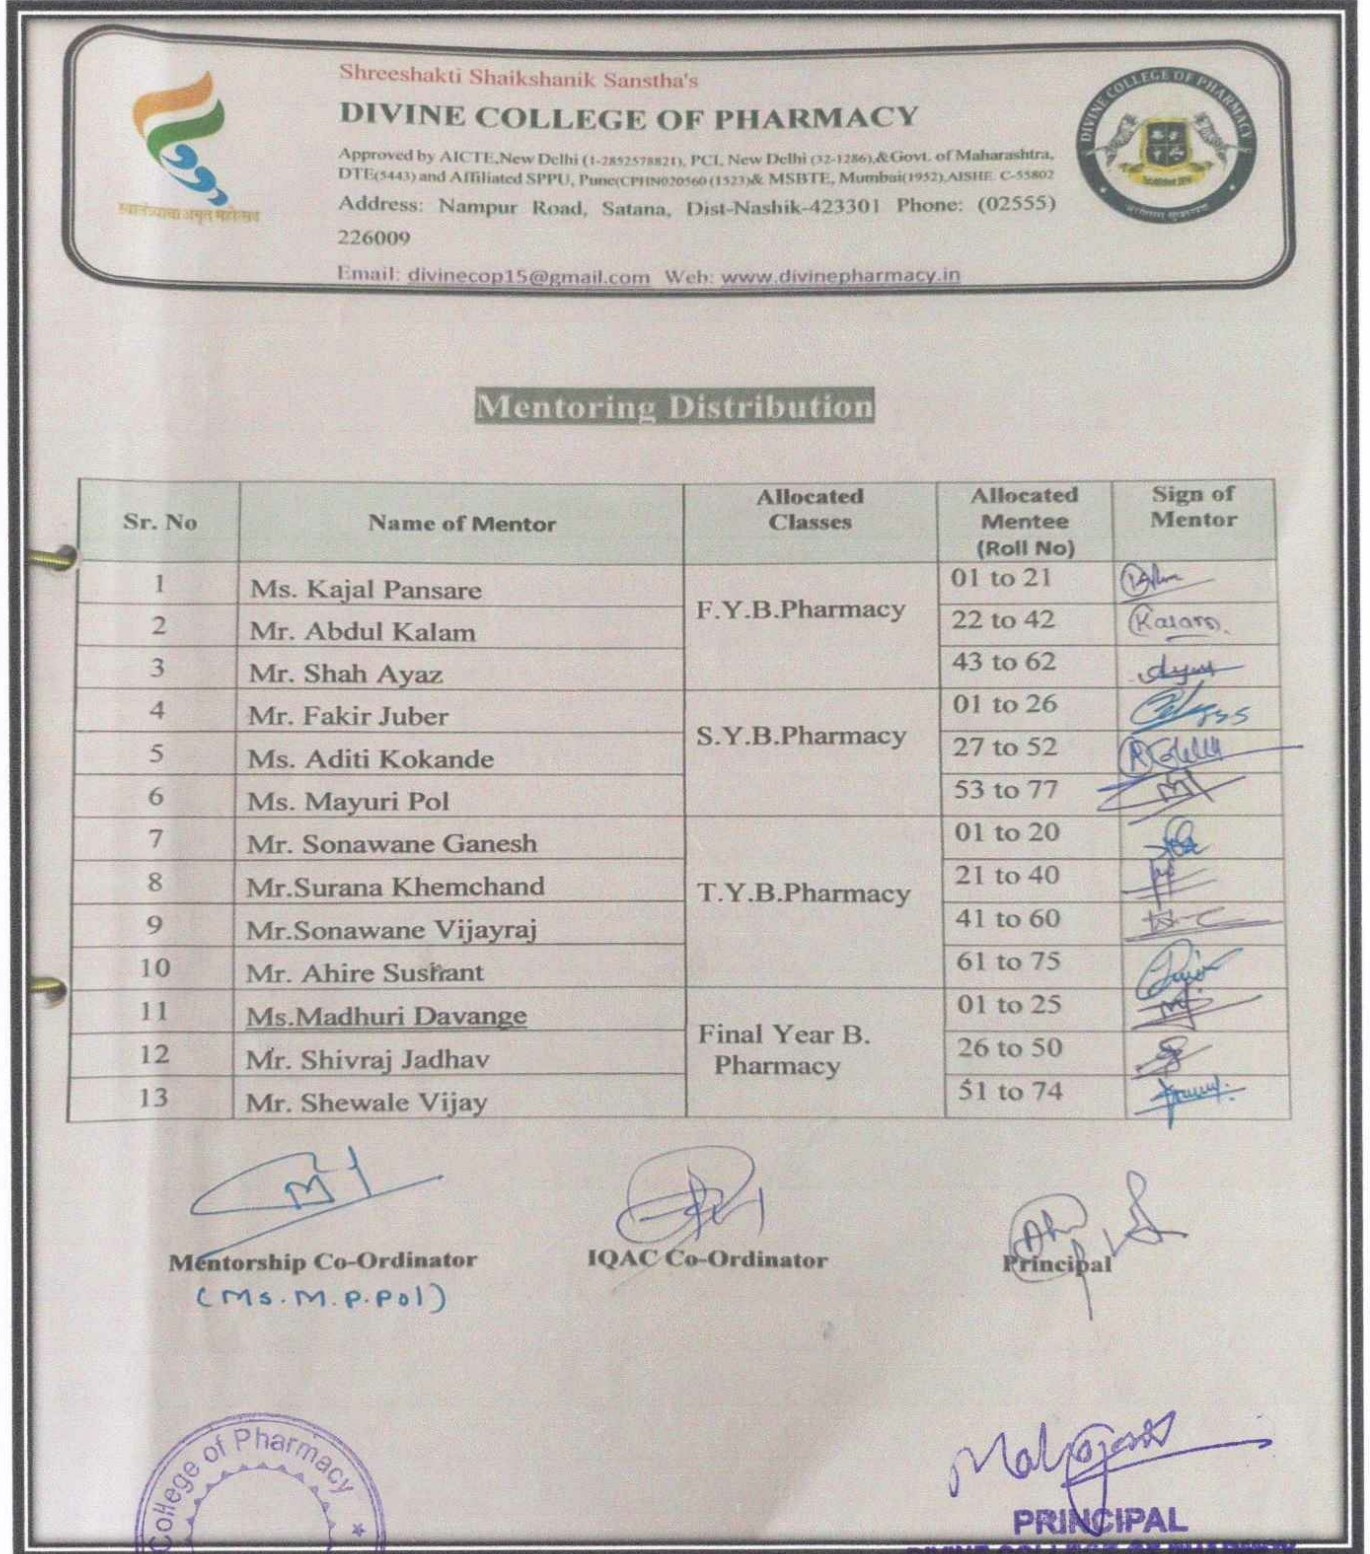 Shreeshakti Shaikshanik Sanstha's
DIVINE COLLEGE OF PHARMACY
Approved by AICTE,New Delhi (1-2852578821), PCI, New Delhi (32-1286),&Govt. of Maharashtra,
DTE(5443) and Affiliated SPPU, Pune(CPHN020560 (1523)& MSBTE, Mumbai(1952),AISHE C-55802
Address: Nampur Road, Satana, Dist-Nashik-423301 Phone: (02555)
226009
Email: divinecop15@gmail.com Web: www.divinepharmacy.in
स्वातंत्र्याचा अमृत महोत्सव
DIVINE COLLEGE OF PHARMACY
Mentoring Distribution
Sr. No Name of Mentor Allocated Classes Allocated Mentee (Roll No) Sign of Mentor
1 Ms. Kajal Pansare F.Y.B.Pharmacy 01 to 21
2 Mr. Abdul Kalam 22 to 42 Kalam
3 Mr. Shah Ayaz 43 to 62
4 Mr. Fakir Juber S.Y.B.Pharmacy 01 to 26
5 Ms. Aditi Kokande 27 to 52
6 Ms. Mayuri Pol 53 to 77
7 Mr. Sonawane Ganesh T.Y.B.Pharmacy 01 to 20
8 Mr.Surana Khemchand 21 to 40
9 Mr.Sonawane Vijayraj 41 to 60
10 Mr. Ahire Sushant 61 to 75
11 Ms.Madhuri Davange Final Year B. Pharmacy 01 to 25
12 Mr. Shivraj Jadhav 26 to 50
13 Mr. Shewale Vijay 51 to 74
Mentorship Co-Ordinator IQAC Co-Ordinator Principal
(Ms. M. P. Pol)
College of Pharmacy *
PRINCIPAL
DIVINE COLLEGE OF PHARMACY